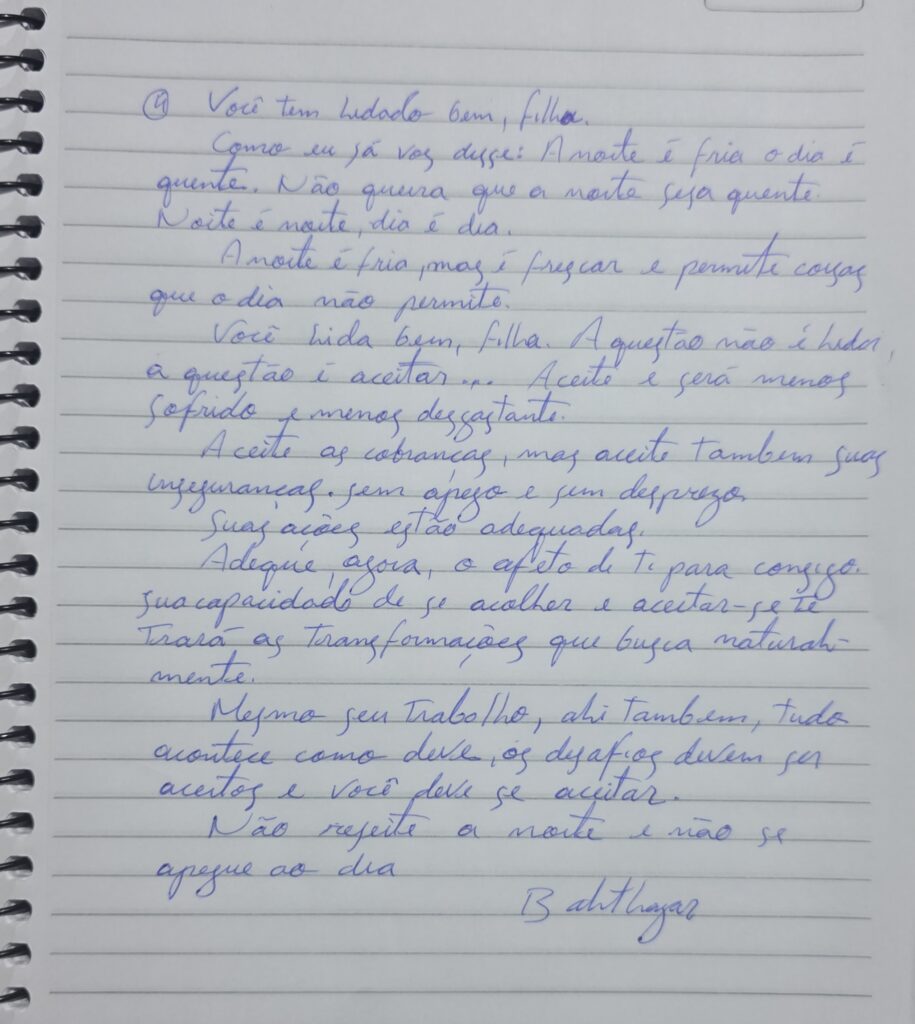 ④ Você tem lidado bem, filha.
Como eu já vos disse: A noite é fria o dia é
quente. Não queira que a noite seja quente.
Noite é noite, dia é dia.
A noite é fria, mas é frescar e permite coisas
que o dia não permite.
Você lida bem, filha. A questão não é lidar,
a questão é aceitar... Aceite e será menos
sofrido e menos desgastante.
Aceite as cobranças, mas aceite tambem suas
inseguranças. sem apego e sem desprezo.
Suas ações estão adequadas.
Adeque, agora, o afeto de ti para consigo.
Sua capacidade de se acolher e aceitar-se te
trará as transformações que busca natural-
mente.
Mesmo seu trabalho, ahi tambem, tudo
acontece como deve, os desafios devem ser
aceitos e você deve se aceitar.
Não rejeite a noite e não se
apegue ao dia
Bahthazar